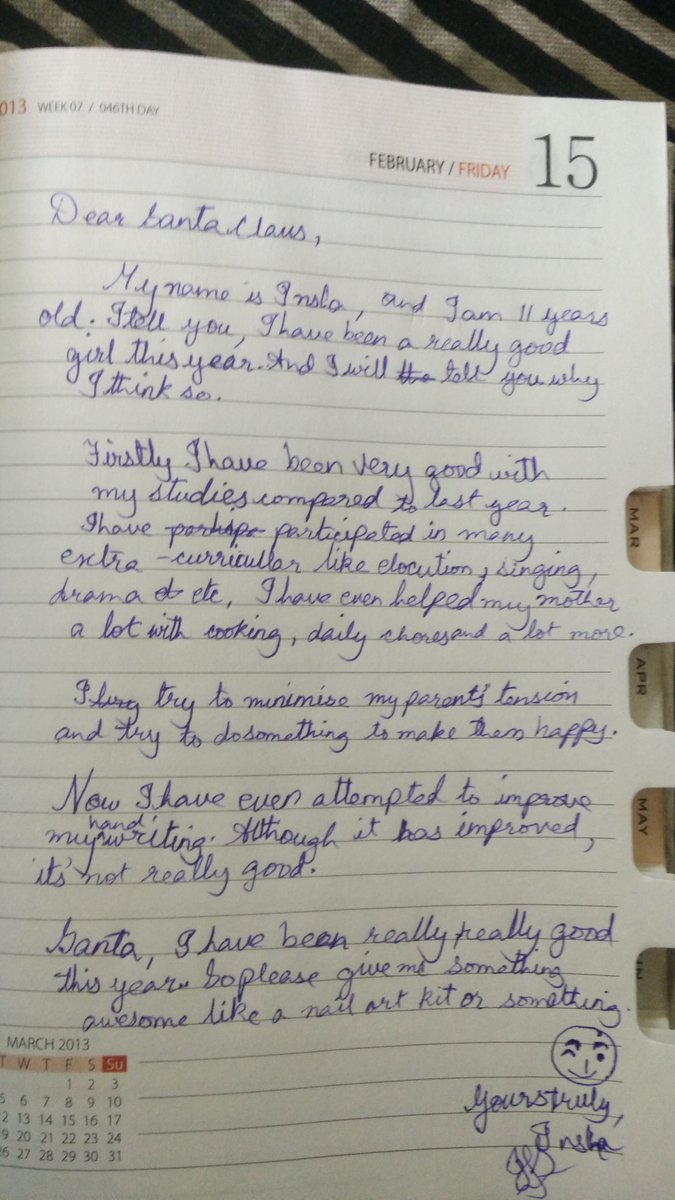 2013 WEEK 07 / 046TH DAY
FEBRUARY / FRIDAY 15
Dear Santa Claus,
My name is Insha, and I am 11 years
old. I tell you, I have been a really good
girl this year. And I will the tell you why
I think so.
Firstly I have been very good with
my studies compared to last year.
I have participated in many
extra-curricullar like elocution, singing,
drama etc, I have even helped my mother
a lot with cooking, daily chores and a lot more.
I try to minimise my parent's tension
and try to do something to make them happy.
Now I have even attempted to improve
my hand writing. Although it has improved,
it's not really good.
Santa, I have been really really good
this year. So please give me something
awesome like a nail art kit or something.
Yours truly,
Insha
MAR
APR
MAY
MARCH 2013
T W T F S Su
1 2 3
5 6 7 8 9 10
12 13 14 15 16 17
19 20 21 22 23 24
26 27 28 29 30 31